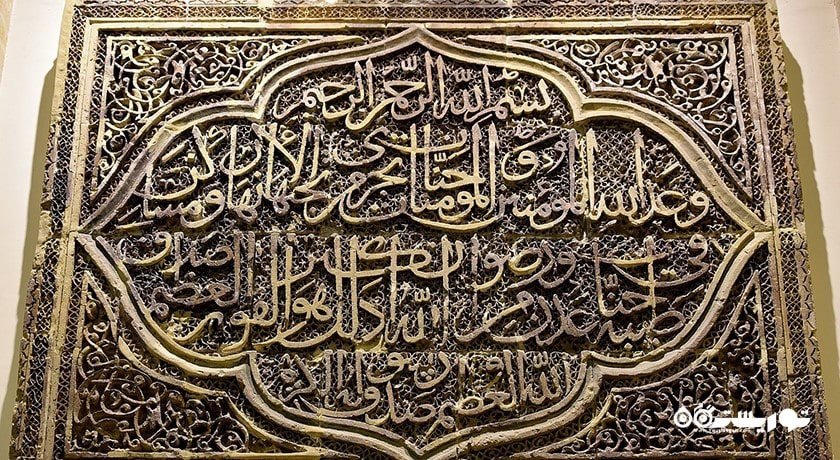 بسم الله الرحمن الرحيم
وعد الله المؤمنين والمؤمنات جنات تجري من تحتها الأنهار ومساكن
طيبة في جنات عدن ورضوان من الله أكبر ذلك هو الفوز العظيم صدق
الله العظيم وصدق رسوله
توریستگاه